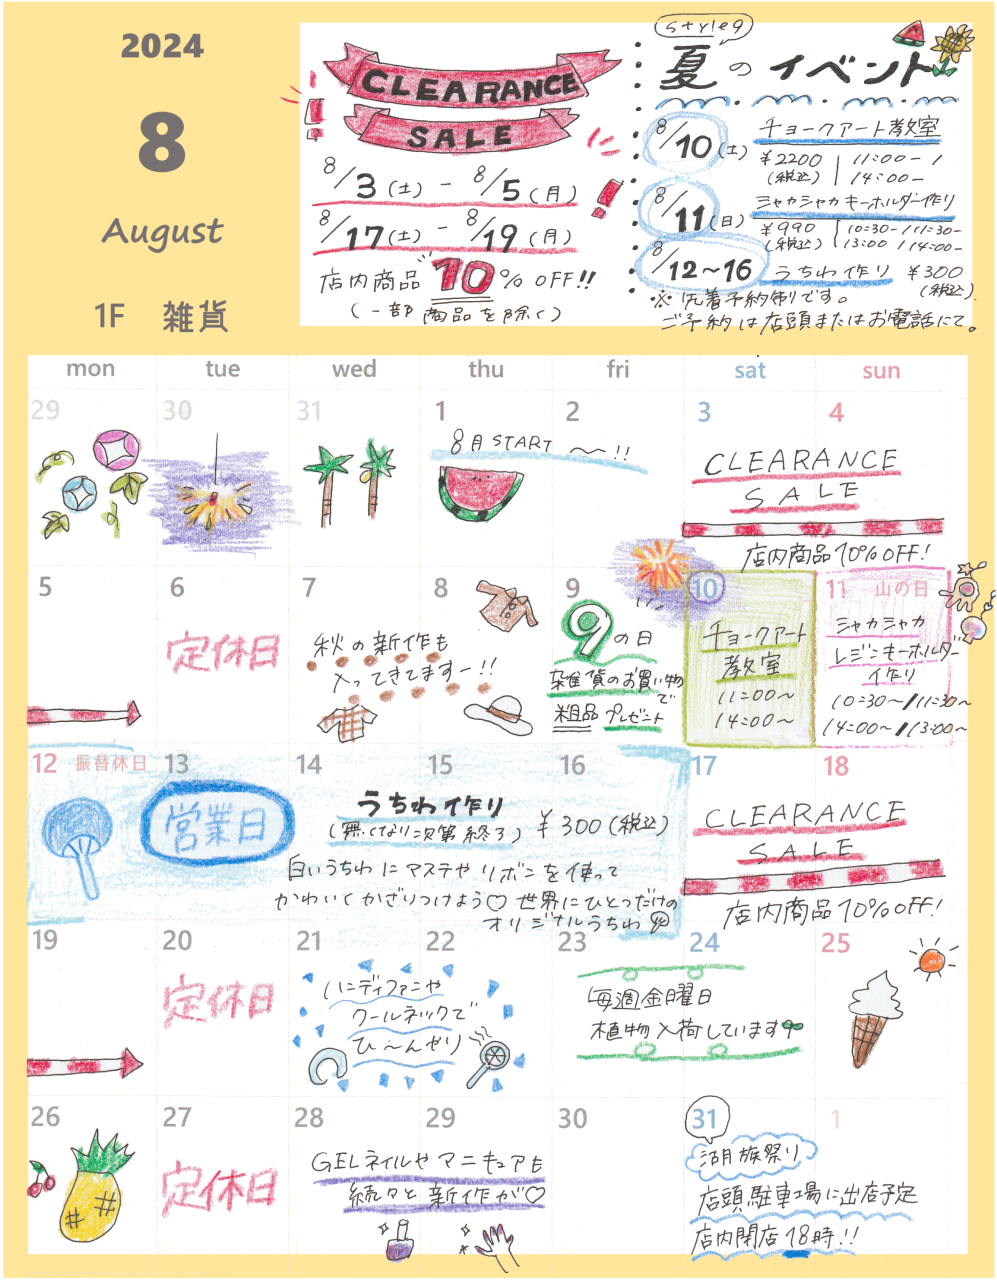 2024
8
August
1F 雑貨
CLEARANCE
SALE
8/3(土) - 8/5(月)
8/17(土) - 8/19(月)
店内商品 10% OFF!!
(一部商品を除く)
style9
夏のイベント
8/10(土) チョークアート教室
¥2200(税込) 11:00- / 14:00-
8/11(日) シャカシャカキーホルダー作り
¥990(税込) 10:30- / 11:30-
13:00 / 14:00-
8/12~16 うちわ作り ¥300(税込)
※先着予約制りです。
ご予約は店頭またはお電話にて。
mon tue wed thu fri sat sun
29 30 31 1 2 3 4
8月START ~!!
CLEARANCE
SALE
店内商品10%OFF!
5 6 7 8 9 10 11 山の日
定休日
秋の新作も
入ってきてますー!!
9の日
雑貨のお買い物で
粗品プレゼント
チョークアート
教室
11:00~
14:00~
シャカシャカ
レジンキーホルダー
作り
10:30~/11:30~
14:00~/13:00~
12 振替休日 13 14 15 16 17 18
営業日
うちわ作り
(無くなり次第終了) ¥300(税込)
白いうちわにマステやリボンを使って
かわいくかざりつけよう♡世界にひとつだけの
オリジナルうちわ
CLEARANCE
SALE
店内商品10%OFF!
19 20 21 22 23 24 25
定休日
ハンディファンや
クールネックで
ひ〜んやり
毎週金曜日
植物入荷しています
26 27 28 29 30 31 1
定休日
GELネイルやマニキュアも
続々と新作が♡
湖族祭り
店頭駐車場に出店予定
店内閉店18時!!